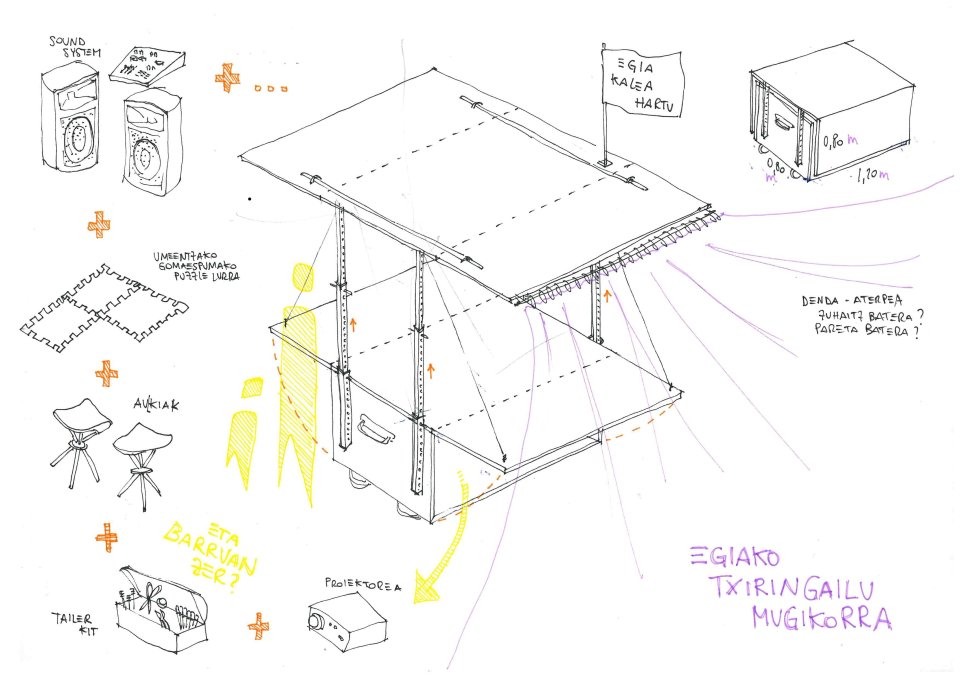 SOUND
SYSTEM
EGIA
KALEA
HARTU
0,80 m
0,80
m
1,20 m
UMEENTZAKO
GOMAESPUMAKO
PUZZLE LURRA
DENDA - ATERPEA
ZUHAITZ BATERA?
PARETA BATERA?
AULKIAK
ETA
BARRUAN
ZER?
TAILER
KIT
PROIEKTOREA
EGIAKO
TXIRINGAILU
MUGIKORRA